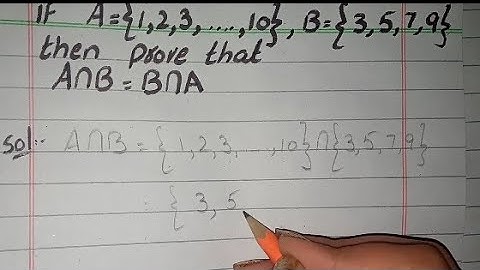 If A={1,2,3,....,10}, B={3,5,7,9}
then prove that
A∩B=B∩A
Sol:- A∩B={1,2,3,...,10}∩{3,5,7,9}
{3,5